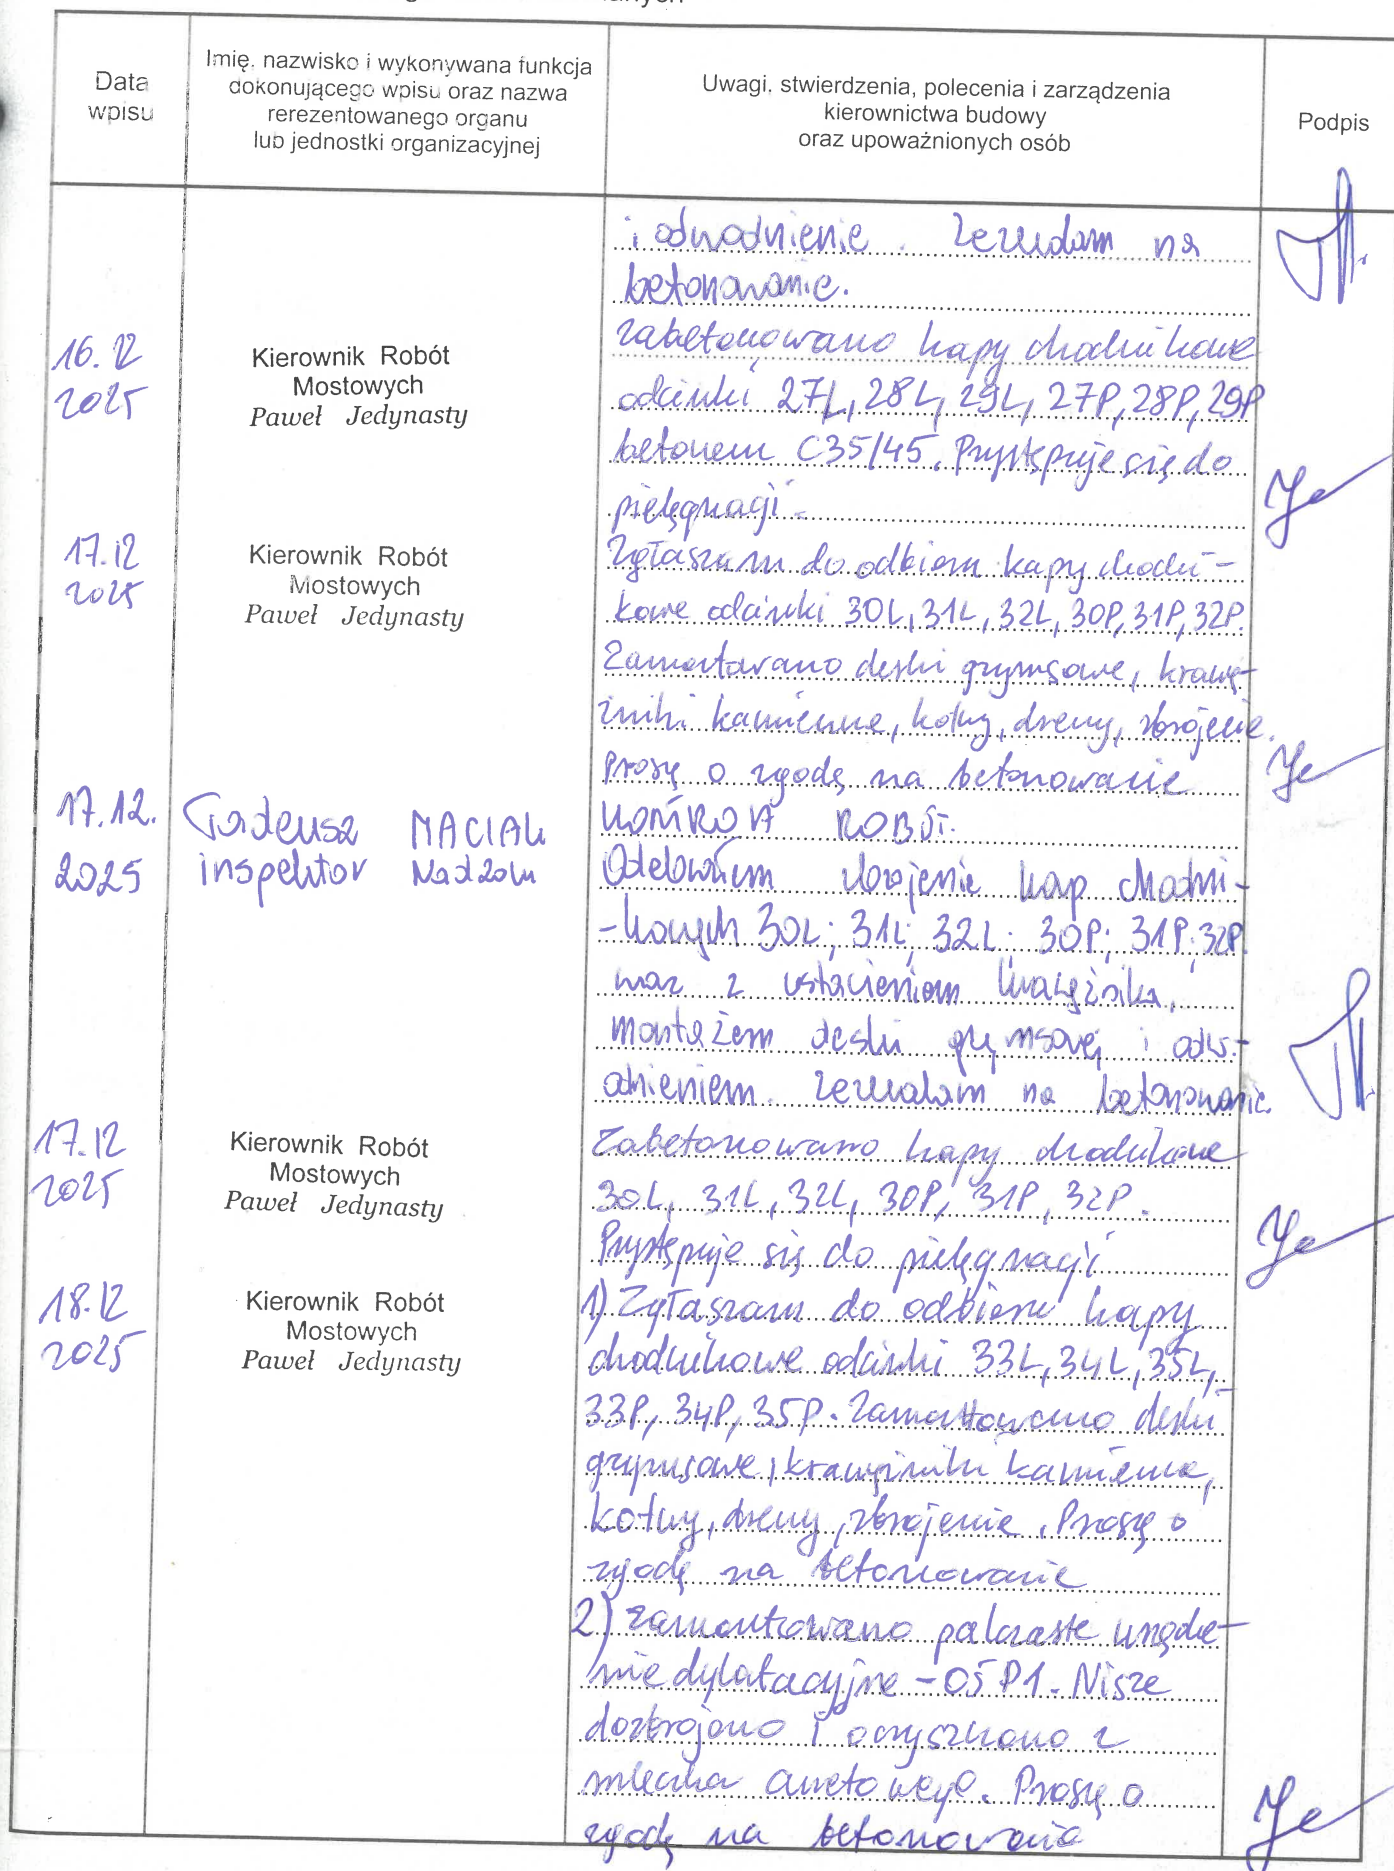 Data
wpisu
Imię, nazwisko i wykonywana funkcja
dokonującego wpisu oraz nazwa
rerezentowanego organu
lub jednostki organizacyjnej
Uwagi, stwierdzenia, polecenia i zarządzenia
kierownictwa budowy
oraz upoważnionych osób
Podpis
i odwodnienie. Zezwalam na
betonowanie.
16.12
2025
Kierownik Robót
Mostowych
Paweł Jedynasty
Zabetonowano kapy chodnikowe
odcinki 27L, 28L, 29L, 27P, 28P, 29P
betonem C35/45. Przystępuje się do
pielęgnacji.
17.12
2025
Kierownik Robót
Mostowych
Paweł Jedynasty
Zgłaszam do odbioru kapy chodni-
kowe odcinki 30L, 31L, 32L, 30P, 31P, 32P.
Zamontowano deski gzymsowe, krawę-
żniki kamienne, kotwy, dreny, zbrojenie.
Proszę o zgodę na betonowanie
17.12.
2025
Tadeusz MACIAK
inspektor Nadzoru
KONTROLA ROBÓT.
Odebrałem zbrojenie kap chodni-
-kowych 30L; 31L; 32L; 30P; 31P; 32P.
wraz z ustawieniem krawężnika,
montażem deski gzymsowej i odw-
odnieniem. Zezwalam na betonowanie.
17.12
2025
Kierownik Robót
Mostowych
Paweł Jedynasty
Zabetonowano kapy chodnikowe
30L, 31L, 32L, 30P, 31P, 32P.
Przystępuje się do pielęgnacji
18.12
2025
Kierownik Robót
Mostowych
Paweł Jedynasty
1) Zgłaszam do odbioru kapy
chodnikowe odcinki 33L, 34L, 35L,
33P, 34P, 35P. Zamontowano deski
gzymsowe, krawężniki kamienne,
kotwy, dreny, zbrojenie. Proszę o
zgodę na betonowanie
2) Zamontowano palczaste urządze-
nie dylatacyjne - OŚ P1. Nisze
dozbrojono i oczyszczono z
mleczka cementowego. Proszę o
zgodę na betonowanie